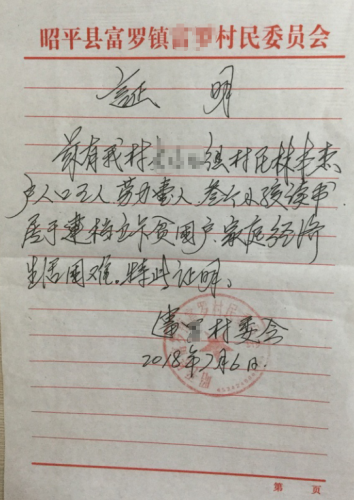 昭平县富罗镇村民委员会
证明
兹有我村组村民林
户人口五人劳力壹人叁个小孩读书.
居于建档立卡贫困户.家庭经济
生活困难.特此证明。
村委会
2018年7月6日.
第 页